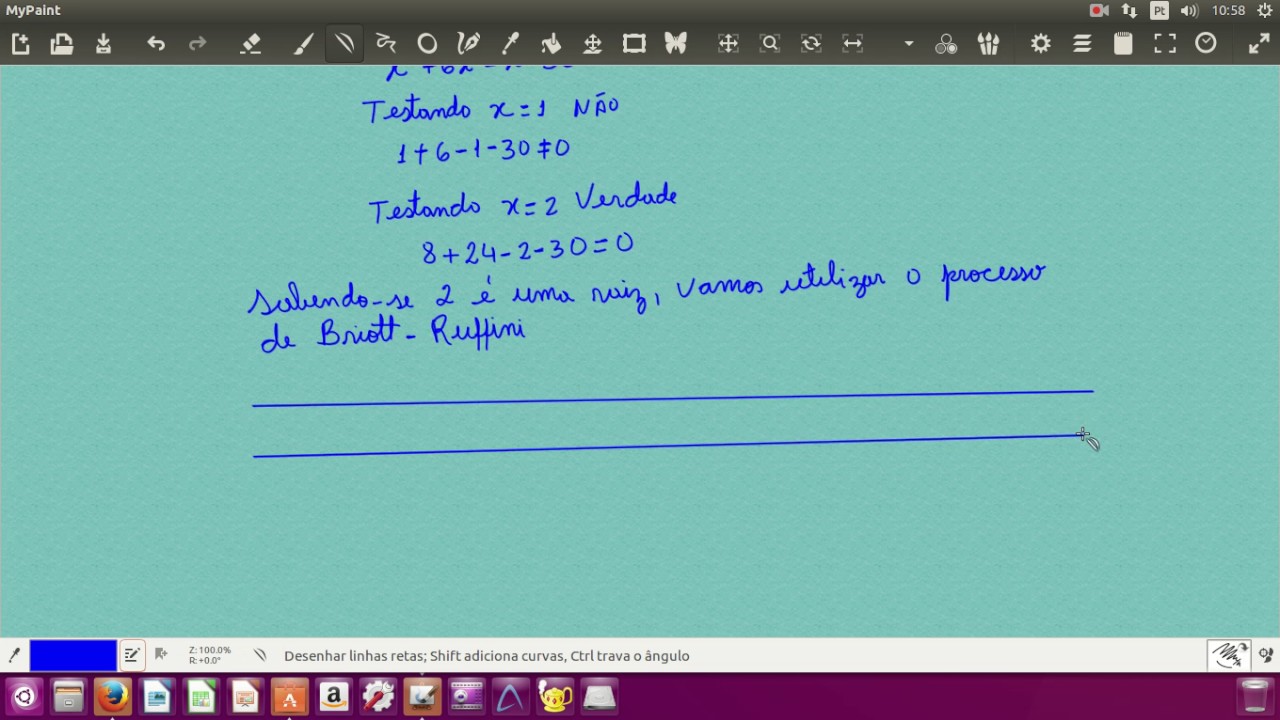 MyPaint
Pt
10:58
Testando x=1 NÃO
1+6-1-30≠0
Testando x=2 Verdade
8+24-2-30=0
Sabendo-se 2 é uma raiz, vamos utilizar o processo
de Briott-Ruffini
Z: 100.0%
R: +0.0°
Desenhar linhas retas; Shift adiciona curvas, Ctrl trava o ângulo